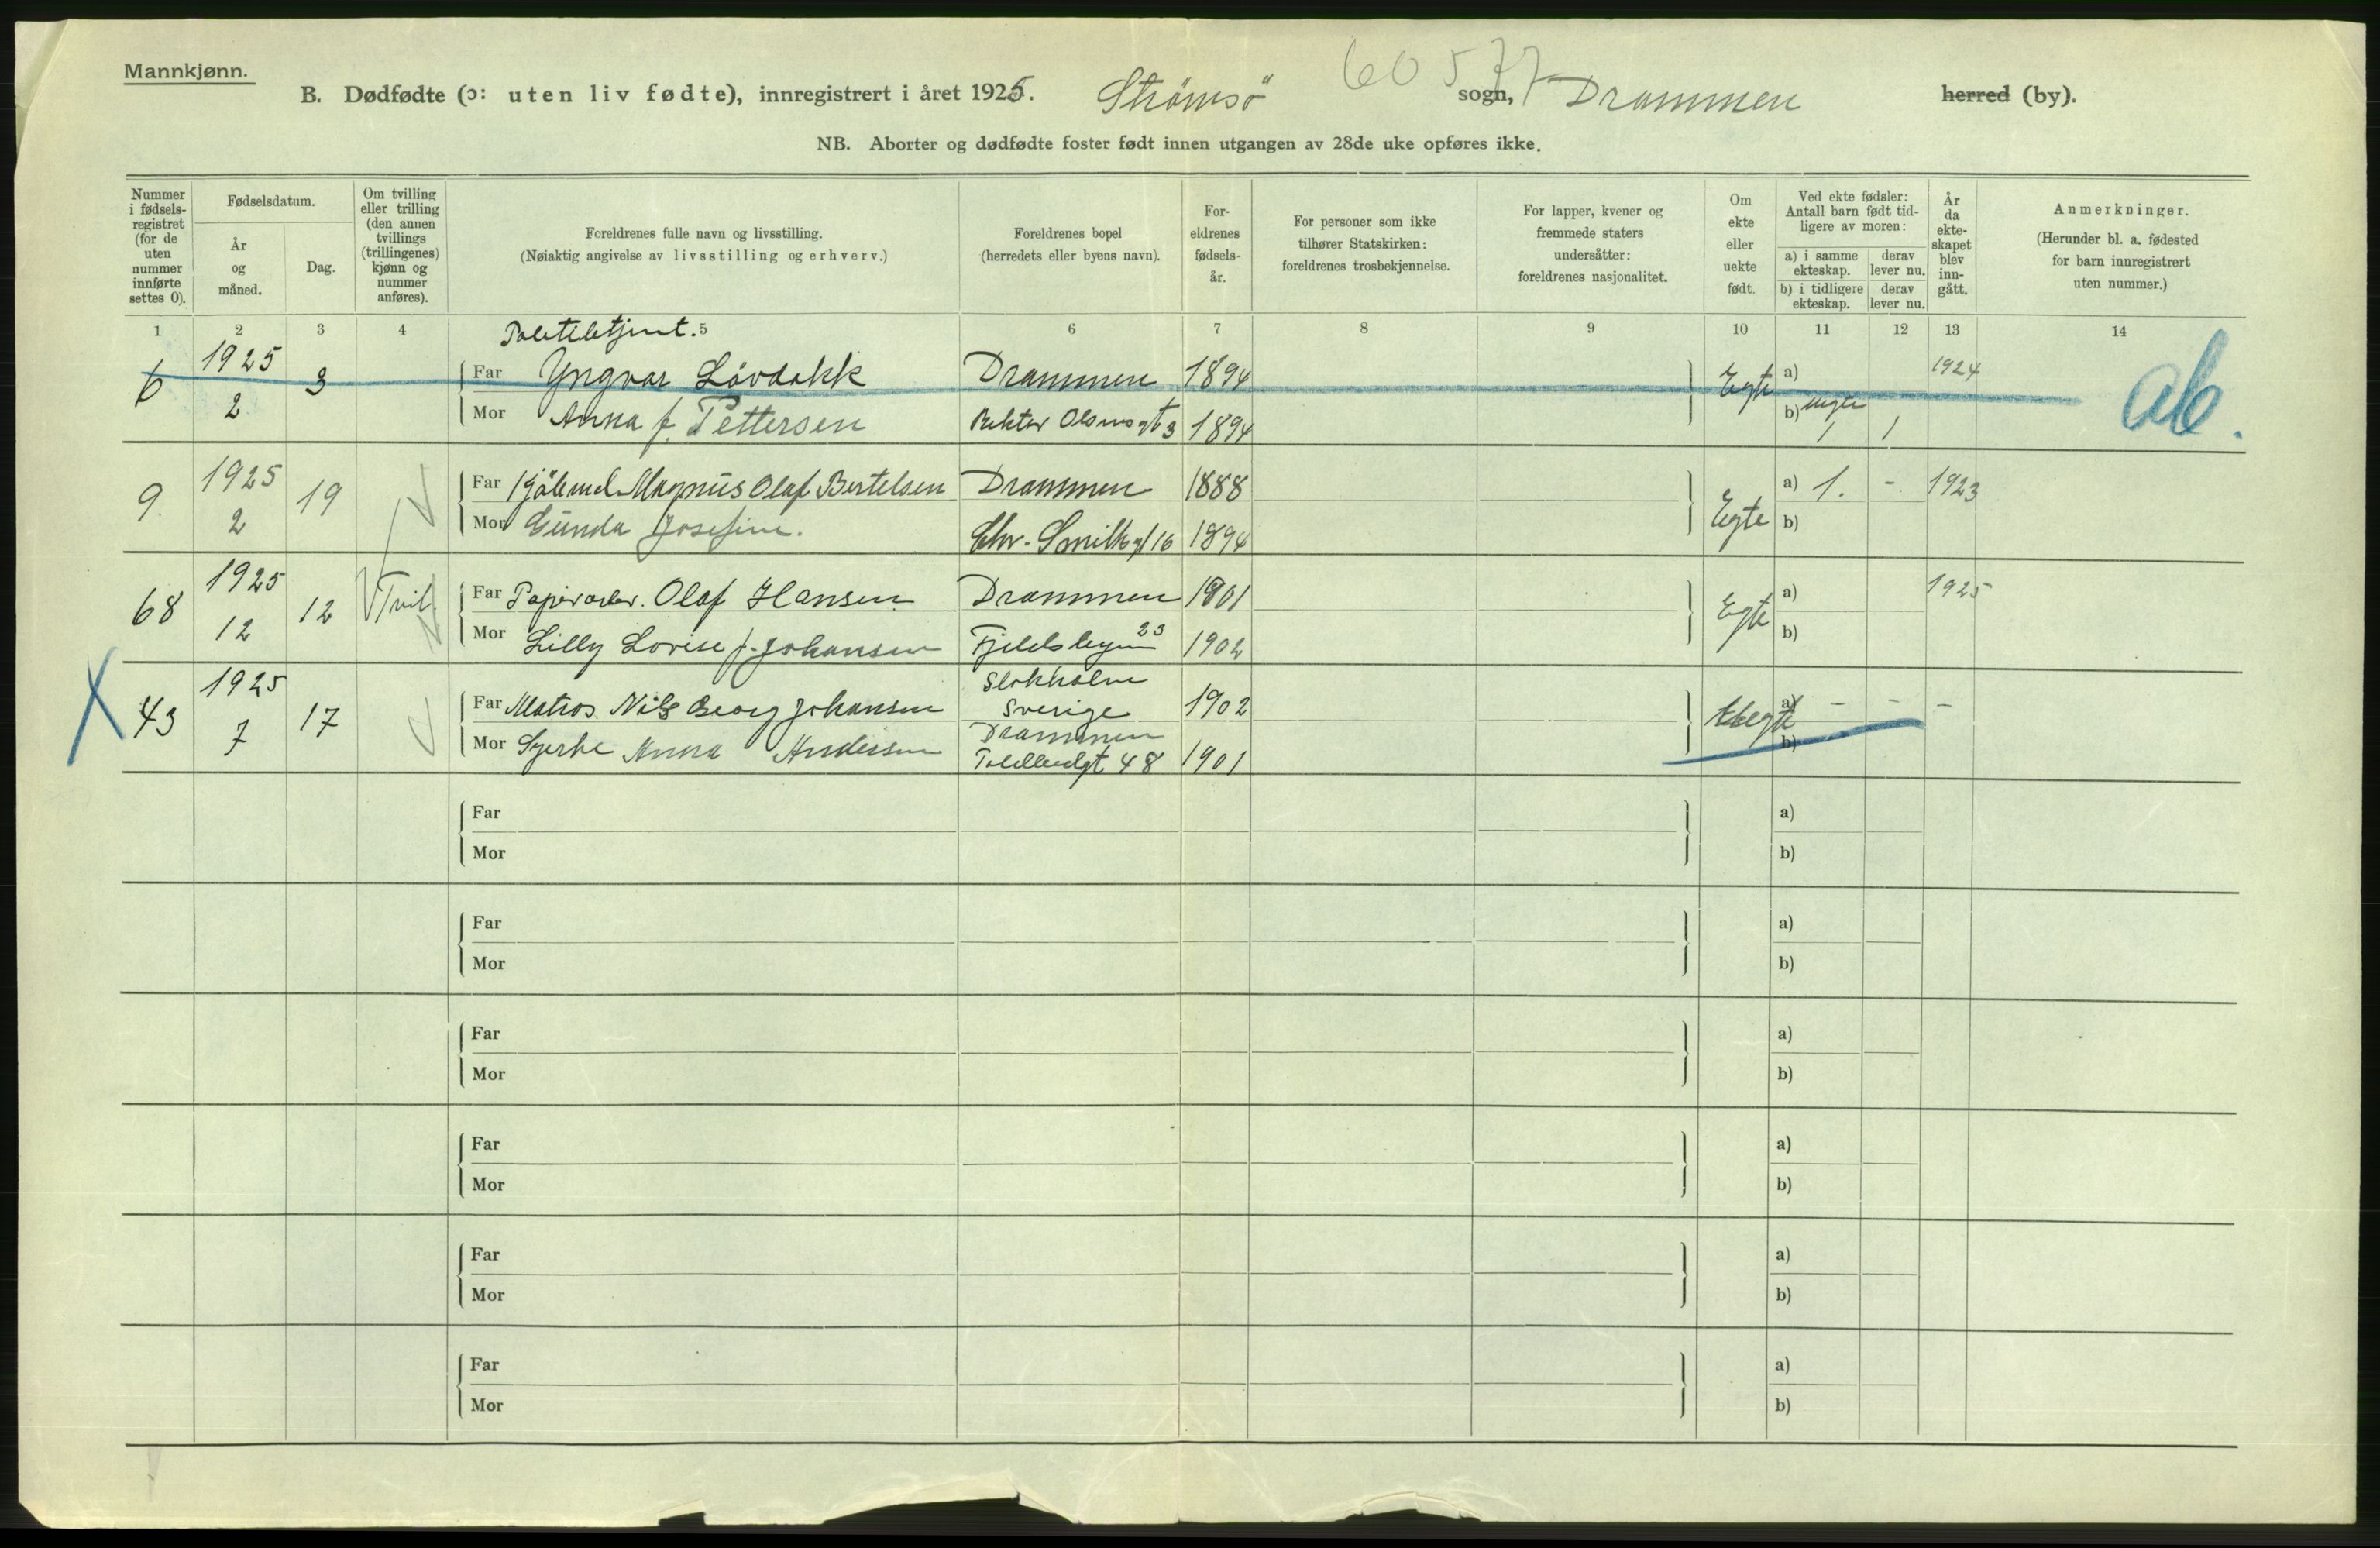 Mannkjønn.
60577
B. Dødfødte (ɔ: uten liv fødte), innregistrert i året 1925. Strømsö sogn, Drammen herred (by).
NB. Aborter og dødfødte foster født innen utgangen av 28de uke opføres ikke.
Nummer i fødsels-registret (for de uten nummer innførte settes 0).
Fødselsdatum.
År og måned.
Dag.
Om tvilling eller trilling (den annen tvillings (trillingenes) kjønn og nummer anføres).
Foreldrenes fulle navn og livsstilling.
(Nøiaktig angivelse av livsstilling og erhverv.)
Foreldrenes bopel
(herredets eller byens navn).
For-eldrenes fødsels-år.
For personer som ikke tilhører Statskirken: foreldrenes trosbekjennelse.
For lapper, kvener og fremmede staters undersåtter: foreldrenes nasjonalitet.
Om ekte eller uekte født.
Ved ekte fødsler: Antall barn født tid-ligere av moren:
a) i samme ekteskap.
derav lever nu.
b) i tidligere ekteskap.
derav lever nu.
År da ekte-skapet blev inn-gått.
Anmerkninger.
(Herunder bl. a. fødested for barn innregistrert uten nummer.)
1 2 3 4 5 6 7 8 9 10 11 12 13 14
6 1925 2 3
Far Yngvar Lövdokk Drammen 1894 Egte a) 1924
Mor Anna f. Pettersen Rektor Olsens gt 3 1894 b) uegte 1 1
ab.
9 1925 2 19
Far Magnus Olaf Bertelsen Drammen 1888 Egte a) 1. - 1923
Mor Gunda Josefine. Chr. Smiths gt 16 1894 b)
68 1925 12 12 Tvil.
Far Papirarb. Olaf Hansen Drammen 1901 Egte a) 1925
Mor Lilly Lovise f. Johansen 23 1902 b)
X 43 1925 7 17
Far Matros Nils Georg Johansen Stokholm Sverige 1902 Uegte a) - - -
Mor Anna Andersen Drammen 48 1901 b)
Far a)
Mor b)
Far a)
Mor b)
Far a)
Mor b)
Far a)
Mor b)
Far a)
Mor b)
Far a)
Mor b)